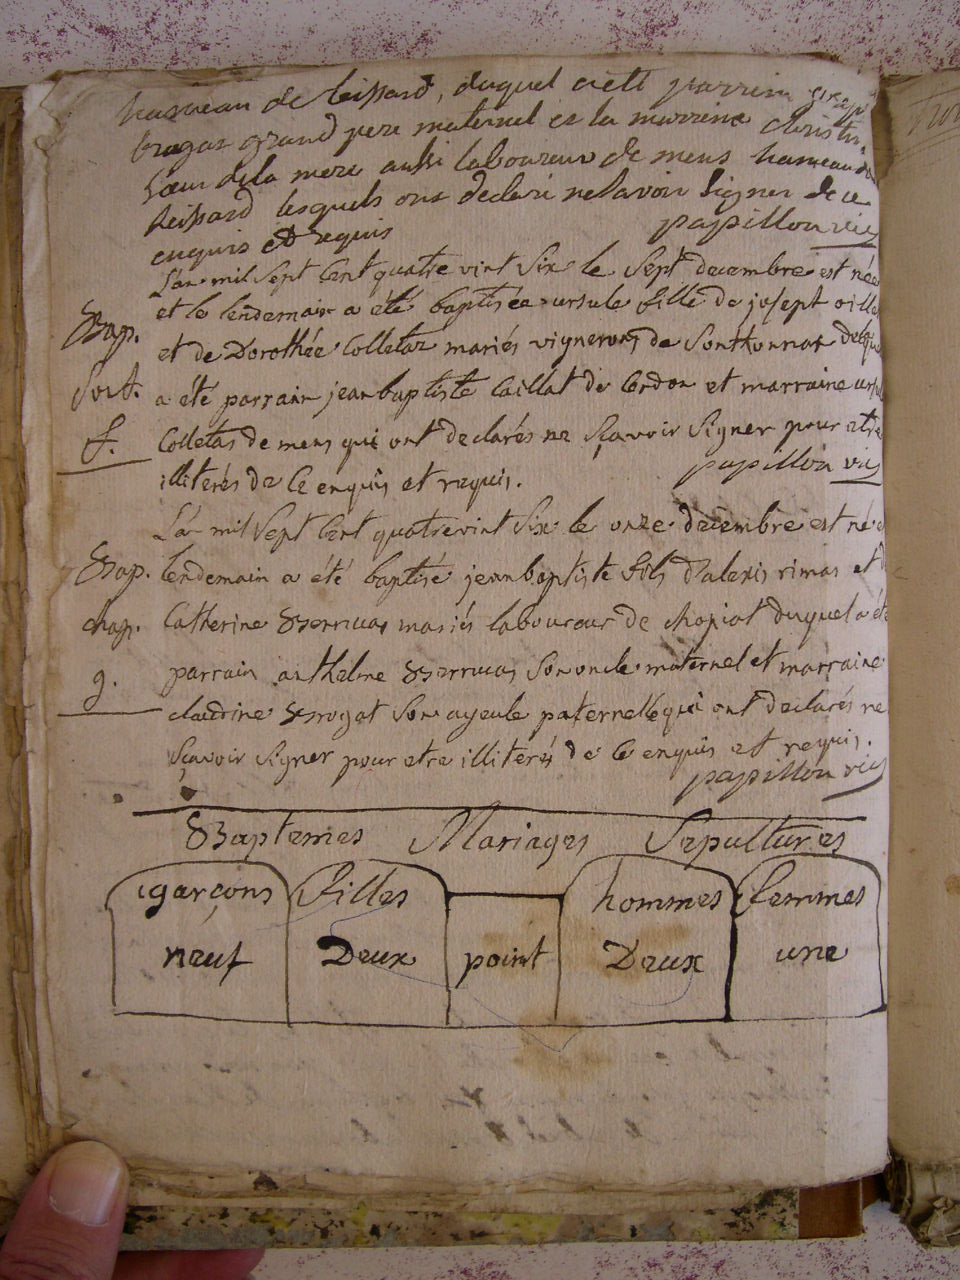 hameau de leissard, duquel a été parrin
brogat grand pere maternel et la marreine christin
sœur de la mere aussi laboureur de mens hameau de
leissard lesquels ont declaré ne savoir signer de ce
enquis et requis papillon vic
L'an mil sept cent quatre vint six le sept decembre est née
et le lendemain a été baptisée ursule fille de josept
Bap. et de Dorothée Colletaz mariés vignerons de Sonthonnax
Sont. a été parrain jean baptiste Caillat de Cerdon et marraine
f. Colletas de mens qui ont declarés ne Sçavoir Signer pour etre
illiterés de Ce enquis et requis. papillon vic
L'an mil Sept Cent quatrevint Six le onze decembre est né
Bap. lendemain a été baptisé jean baptiste fils d'alexis rimas et
chap. Catherine mariés laboureur de chapiat duquel a été
g. parrain anthelme Son oncle maternel et marraine
claudine Brogat Son ayeule paternelle qui ont declarés ne
Sçavoir Signer pour etre illiterés de Ce enquis et requis.
papillon vic
Baptemes Mariages Sepultures
garçons filles hommes femmes
neuf Deux point Deux une